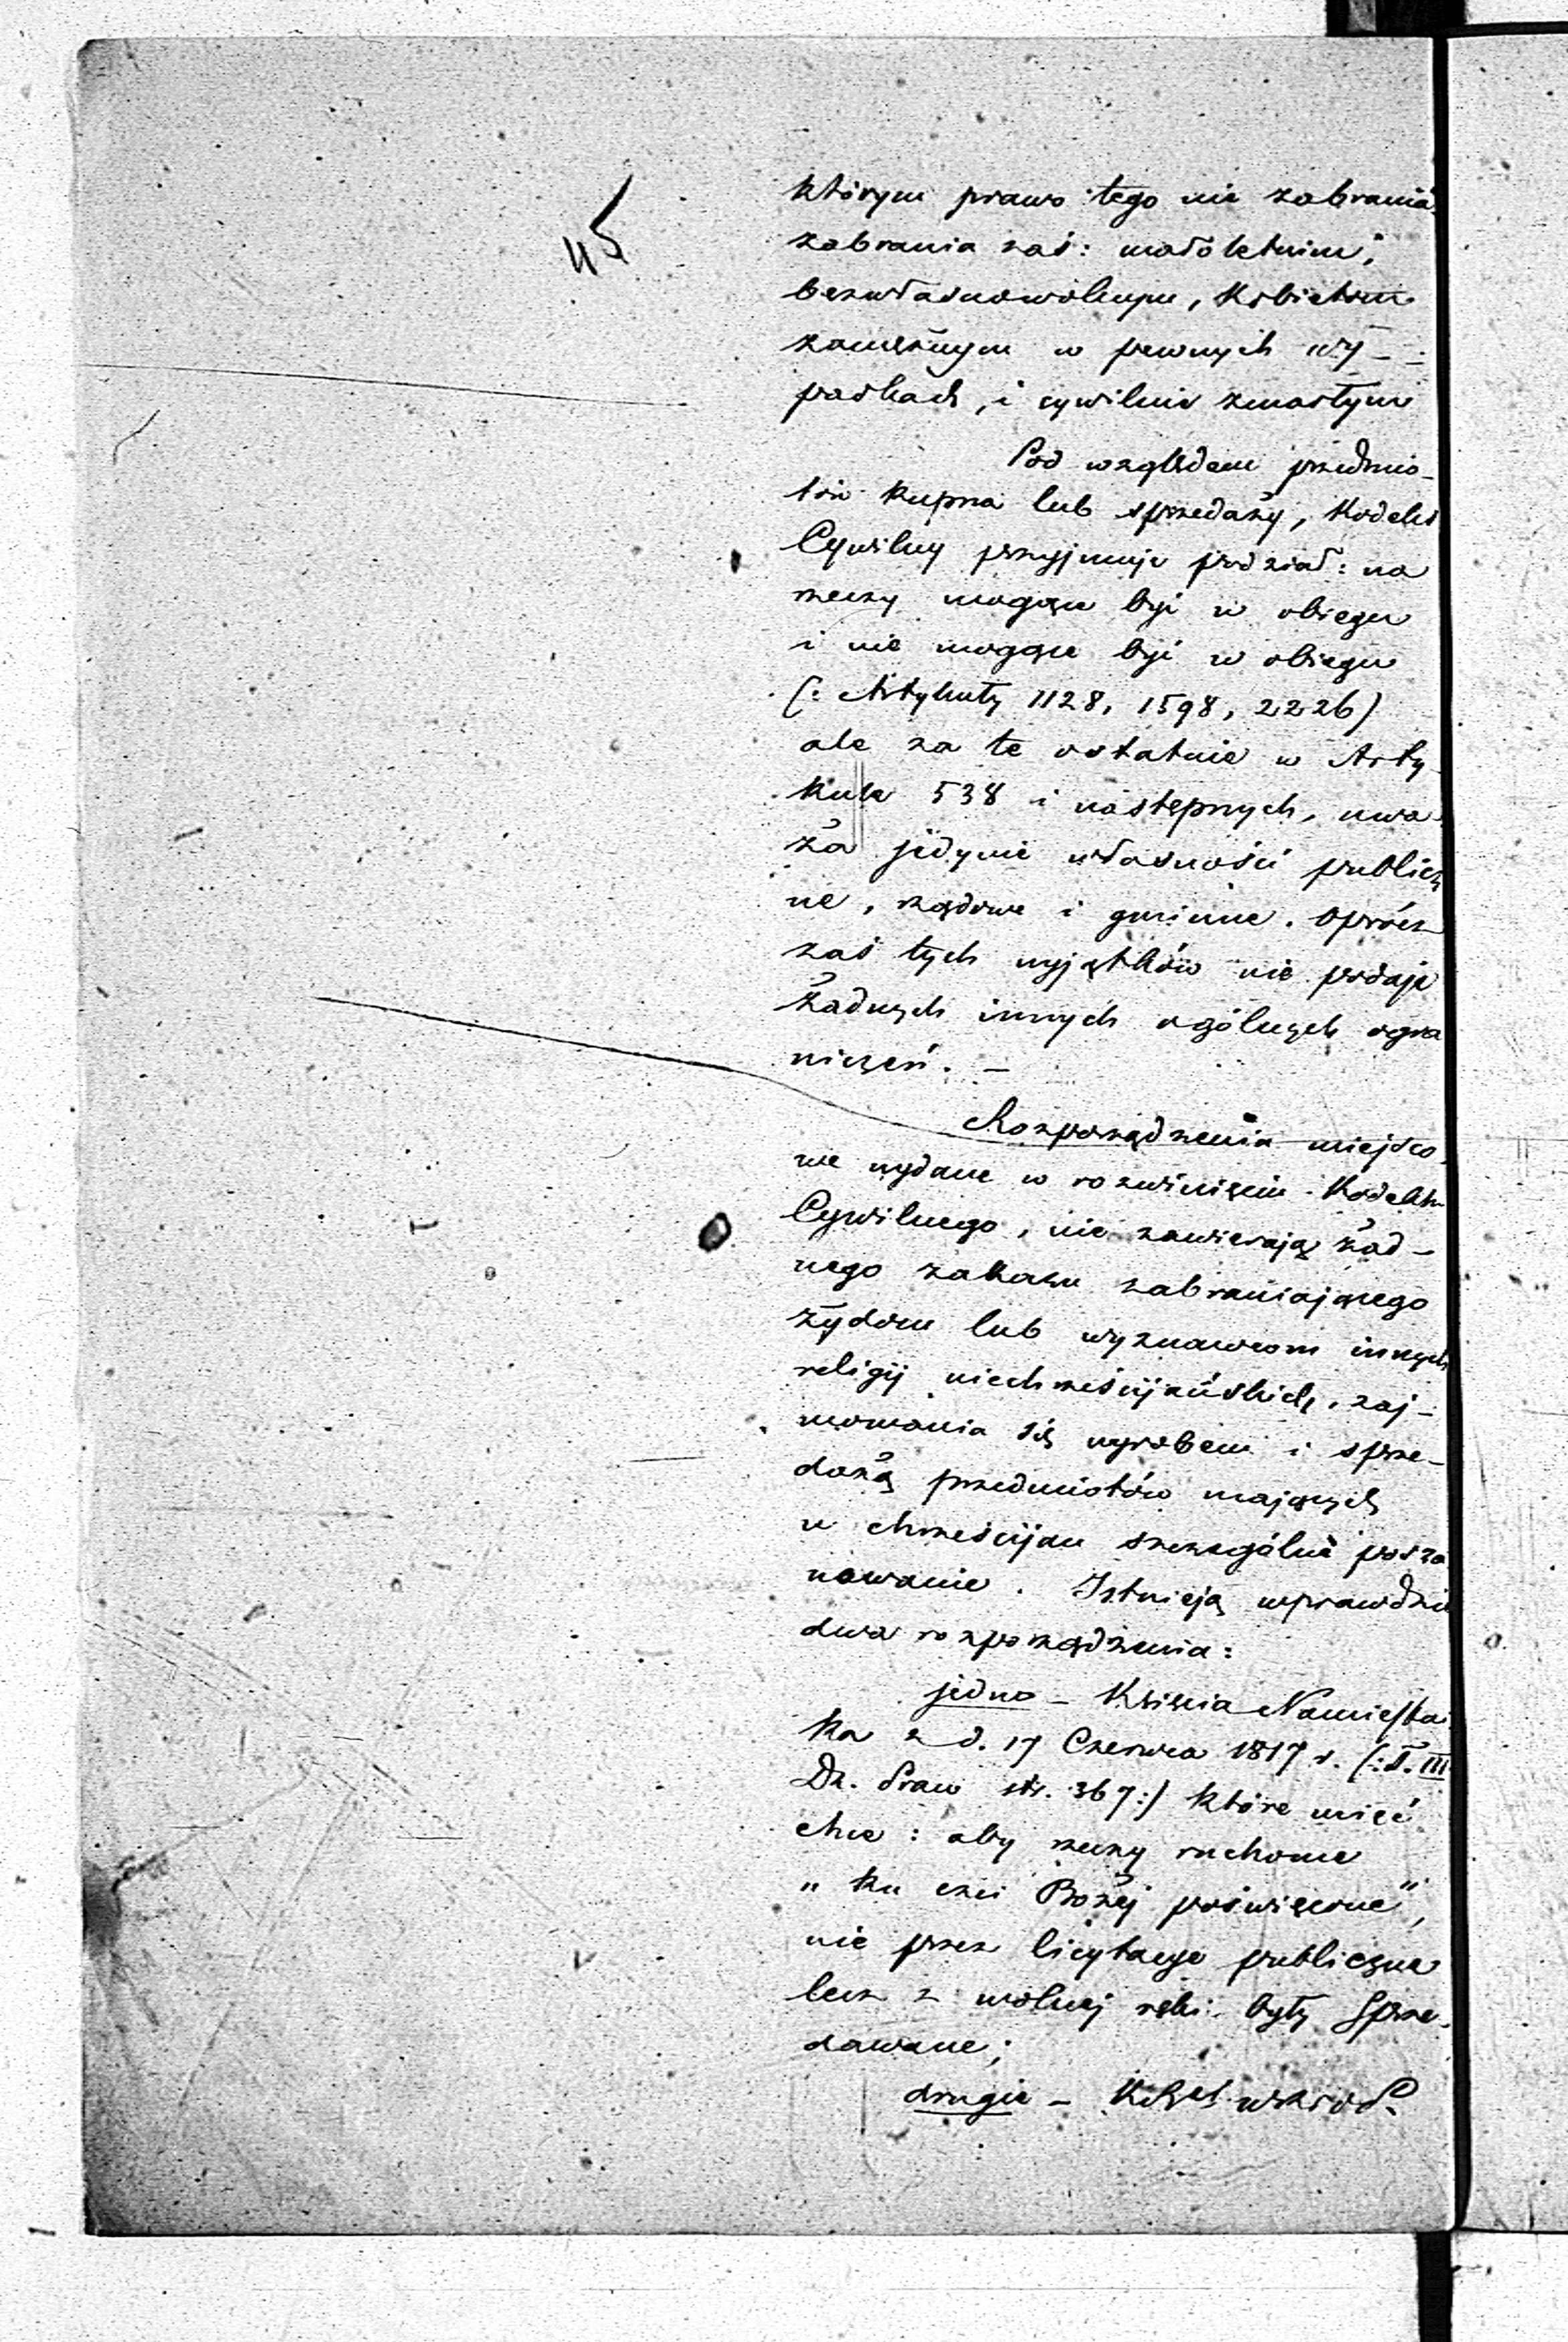 115
którym prawo tego nie zabrania
zabrania zaś: małoletnim,
bezwłasnowolnym, Kobietom
zamężnym w pewnych wy-
padkach, i cywilnie zmarłym
Pod względem przedmio-
tów kupna lub sprzedaży, Kodeks
Cywilny przyjmuje podział: na
rzeczy mogące być w obiegu
i nie mogące być w obiegu
(: Artykuły 1128, 1598, 2226)
ale za te ostatnie w Arty-
kule 538 i następnych, uwa-
ża jedynie własności publicz
ne, rządowe i gminne. Oprócz
zaś tych wyjątków nie podaje
żadnych innych ogólnych ogra
niczeń. -
Rozporządzenia miejsco-
we wydane w rozwinięciu Kodeksu
Cywilnego, nie zawierają żad-
nego zakazu zabraniającego
żydom lub wyznawcom innych
religij niechrześcijańskich, zaj-
mowania się wyrobem i sprze-
dażą przedmiotów mających
u chrześcijan szczególne posza
nowanie. Istnieją wprawdzie
dwa rozporządzenia:
jedno - Księcia Namiestni
ka z d. 17 Czerwca 1817 r. (: T. III
Dz. Praw str. 367:) które mieć
chce: aby rzeczy ruchome
„ku czci Bożej poświęcone",
nie przez licytacye publiczne
lecz z wolnej ręki były sprze-
dawane;
drugie -